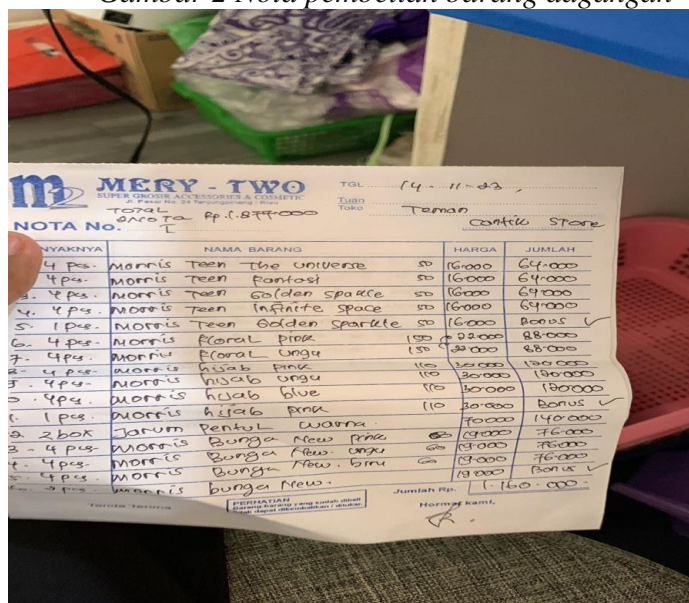 Gambar 2 Nota pembelian barang dagangan
MERY - TWO
SUPER GROSIR ACCESSORIES & COSMETIC
TGL 14 - 11 - 23,
Tuan
Toko
Teman
Cantik Store
TOTAL
Rp. 1.877.000
NOTA No. I
NYAKNYA NAMA BARANG HARGA JUMLAH
4 pcs. Morris Teen The universe 50 16.000 64.000
4 pcs. Morris Teen Fantasi 50 16.000 64.000
3. 4 pcs. Morris Teen Golden Sparkle 50 16.000 64.000
4. 4 pcs. Morris Teen Infinite Space 50 16.000 64.000
5. 1 pcs. Morris Teen Golden Sparkle 50 16.000 Bonus
6. 4 pcs. Morris Floral Pink 150 22.000 88.000
7. 4 pcs. Morris Floral Ungu 150 22.000 88.000
4 pcs. Morris hijab Pink 110 30.000 120.000
4 pcs- Morris hijab ungu 110 30.000 120.000
4 pcs. Morris hijab blue 110 30.000 120.000
1 pcs. Morris hijab pink 110 30.000 Bonus
2 box Jarum Pentul warna. 70.000 140.000
3 - 4 pcs- Morris Bunga New Pink 60 19.000 76.000
4 pcs- Morris Bunga New. ungu 60 19.000 76.000
4 pcs. Morris Bunga New. biru 60 19.000 76.000
Morris bunga New. 19.000 Bonus
Jumlah Rp. 1.160.000.
Tanda Terima
PERHATIAN
Barang-barang yang sudah dibeli
tidak dapat dikembalikan / ditukar.
Hormat kami,